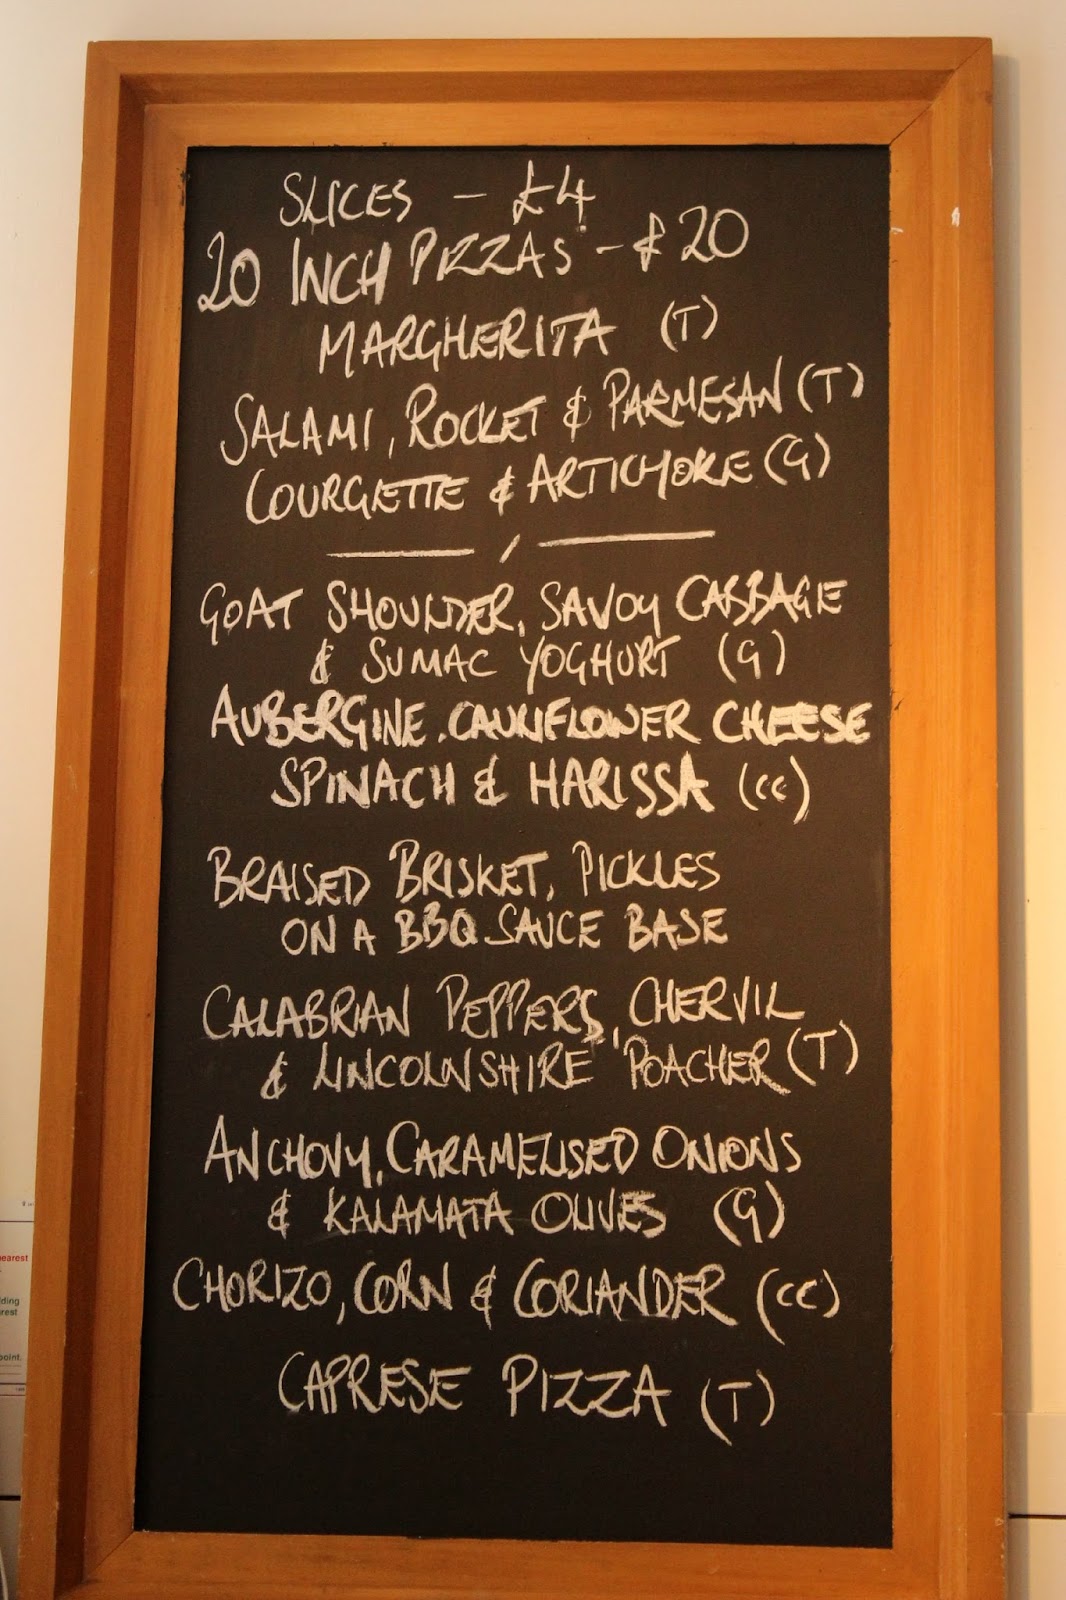 SLICES - £4
20 INCH PIZZAS - £20
MARGHERITA (T)
SALAMI, ROCKET & PARMESAN (T)
COURGETTE & ARTICHOKE (G)
GOAT SHOULDER, SAVOY CABBAGE
& SUMAC YOGHURT (G)
AUBERGINE, CAULIFLOWER CHEESE
SPINACH & HARISSA (CC)
BRAISED BRISKET, PICKLES
ON A BBQ SAUCE BASE
CALABRIAN PEPPERS, CHERVIL
& LINCOLNSHIRE POACHER (T)
ANCHOVY, CARAMELISED ONIONS
& KALAMATA OLIVES (G)
CHORIZO, CORN & CORIANDER (CC)
CAPRESE PIZZA (T)
point.